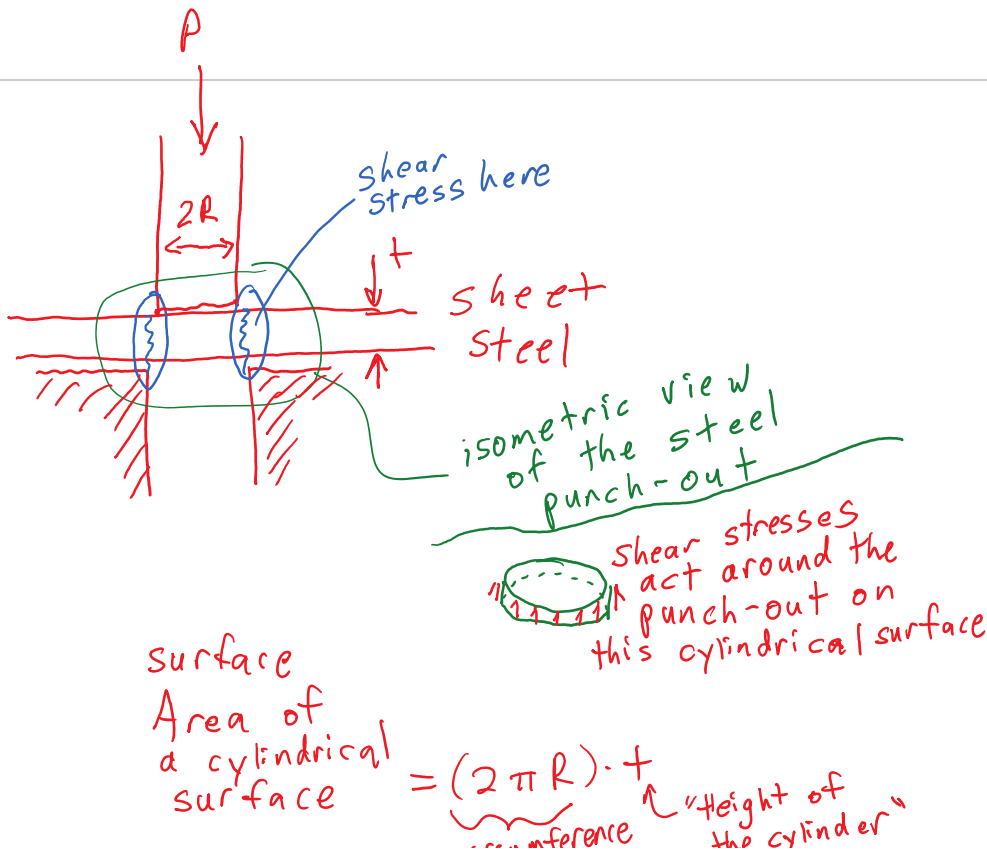 P
shear
stress here
2R
t
sheet
steel
isometric view
of the steel
punch-out
shear stresses
act around the
punch-out on
this cylindrical surface
surface
Area of
a cylindrical
surface
= (2πR)·t
"Height of
the cylinder"